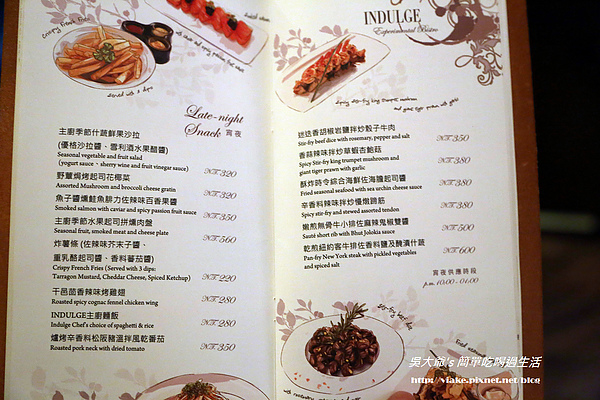 Crispy French Fries
served with 3 dips
INDULGE
Experimental Bistro
Late-night
Snack 宵夜
主廚季節什蔬鮮果沙拉
(優格沙拉醬、雪利酒水果醋醬)
Seasonal vegetable and fruit salad
(yogurt sauce、sherry wine and fruit vinegar sauce) NT 320
野蕈焗烤起司花椰菜
Assorted Mushroom and broccoli cheese gratin NT 320
魚子醬燻鮭魚腓力佐辣味百香果醬
Smoked salmon with caviar and spicy passion fruit sauce NT 350
主廚季節水果起司拼燻肉盤
Seasonal fruit, smoked meat and cheese plate NT 560
炸薯條 (佐辣味芥末子醬、
重乳酪起司醬、香料蕃茄醬)
Crispy French Fries (Served with 3 dips:
Tarragon Mustard, Cheddar Cheese, Spiced Ketchup) NT 220
干邑茴香辣味烤雞翅
Roasted spicy cognac fennel chicken wing NT 280
INDULGE主廚麵飯
Indulge Chef's choice of spaghetti & rice NT 280
爐烤辛香料松阪豬溫拌風乾蕃茄
Roasted pork neck with dried tomato NT 350
迷迭香胡椒岩鹽拌炒骰子牛肉
Stir-fry beef dice with rosemary, pepper and salt NT 350
香蒜辣味拌炒草蝦杏鮑菇
Spicy Stir-fry king trumpet mushroom and
giant tiger prawn with garlic NT 380
酥炸時令綜合海鮮佐海膽起司醬
Fried seasonal seafood with sea urchin cheese sauce NT 380
辛香料辣味拌炒慢燉蹄筋
Spicy stir-fry and stewed assorted tendon NT 380
嫩煎無骨牛小排佐麻辣鬼椒雙醬
Sauté short rib with Bhut Jolokia sauce NT 500
乾煎紐約客牛排佐香料鹽及醃漬什蔬
Pan-fry New York steak with pickled vegetables
and spiced salt NT 600
宵夜供應時段
p.m. 10:00 - 01:00
吳大爺's 簡單吃喝過生活
http://vlake.pixnet.net/blog